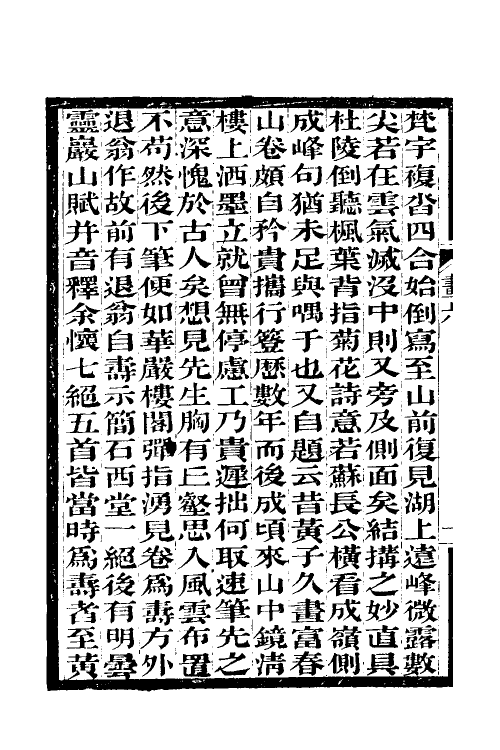 梵宇複沓四合始倒寫至山前復見湖上遠峰微露數
尖若在雲氣滅沒中則又旁及側面矣結搆之妙直具
杜陵倒聽楓葉背指菊花詩意若蘇長公橫看成嶺側
成峰句猶未足與喁于也又自題云昔黃子久畫富春
山卷頗自矜貴攜行簦歷數年而後成頃來山中鏡淸
樓上洒墨立就曾無停慮工乃貴遲拙何取速筆先之
意深愧於古人矣想見先生胸有丘壑思入風雲布置
不苟然後下筆便如華嚴樓閣彈指湧見卷爲壽方外
退翁作故前有退翁自壽示簡石西堂一絕後有明曇
靈巖山賦并音釋余懷七絕五首皆當時爲壽者至黃
畫六
一